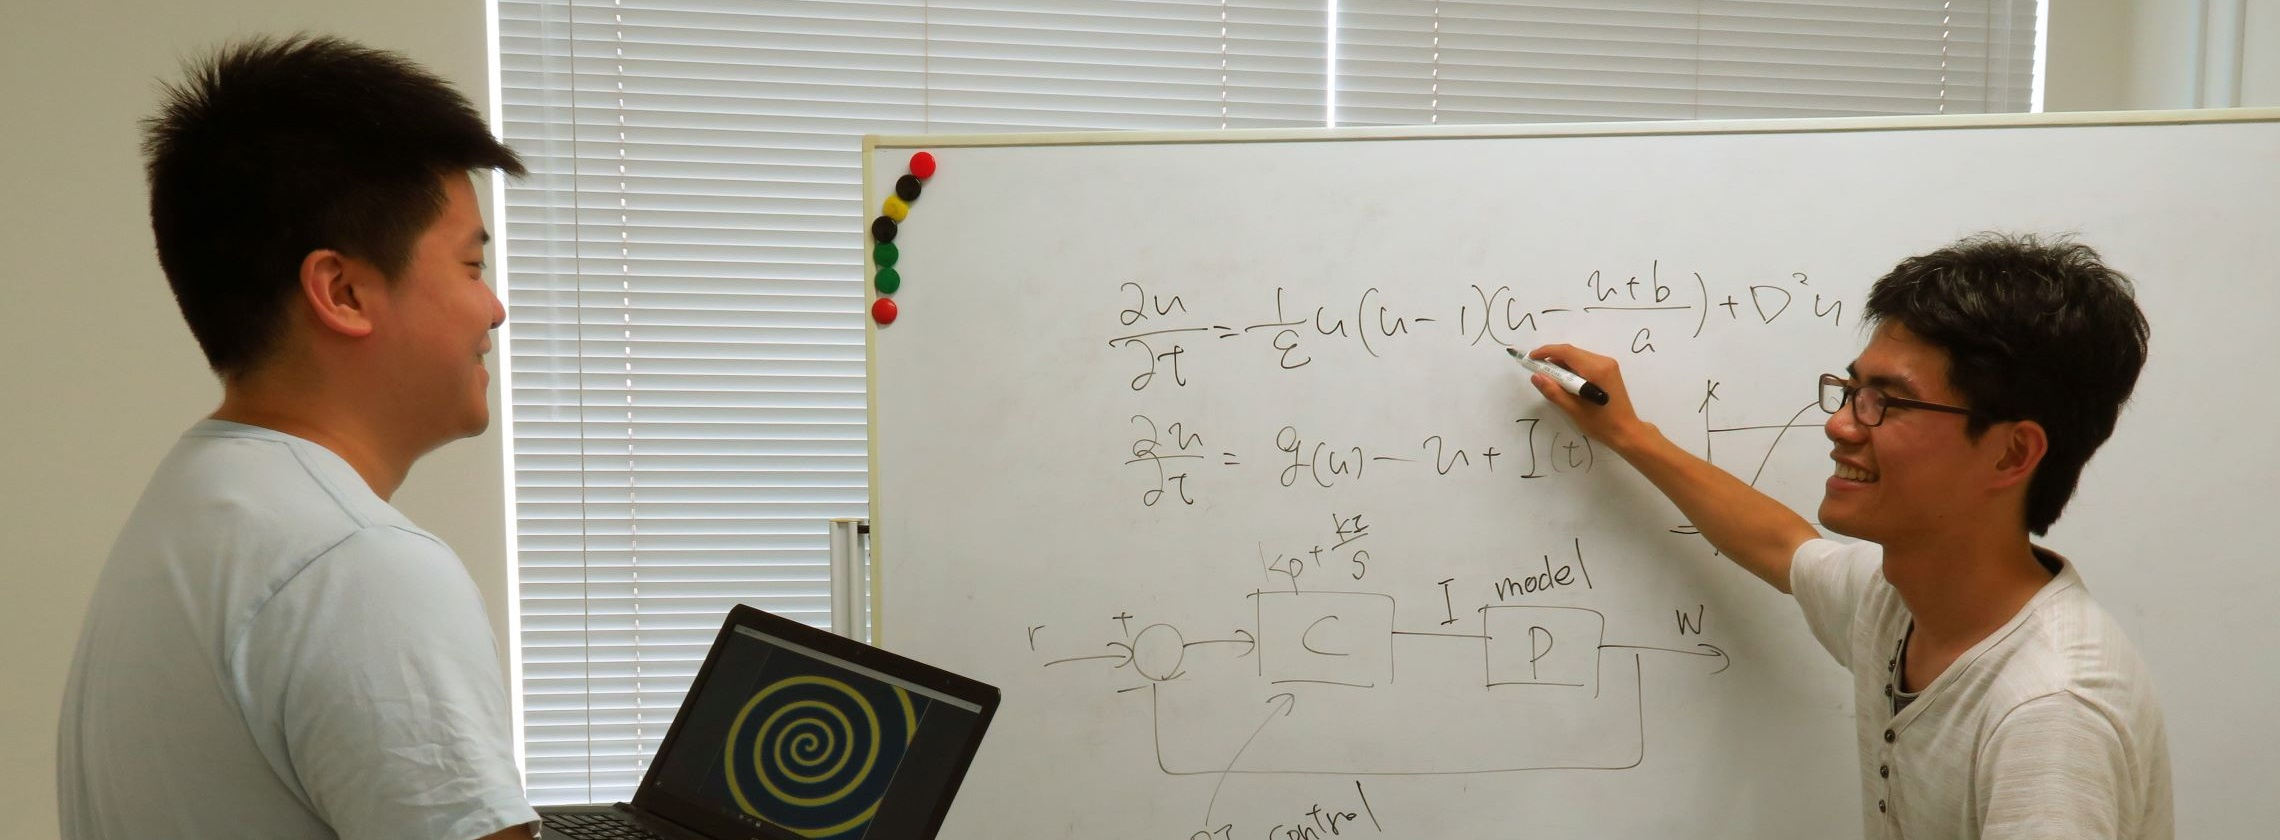 ∂u/∂t = 1/ε u(u-1)(u - u+b/a) + D²u
∂u/∂t = g(u) - u + I(t)
K
kp + kI/s
I model
r + C P W
-
PI control